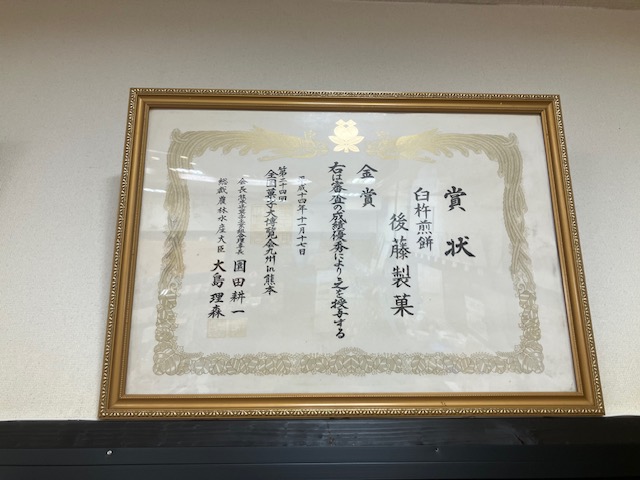 賞状
臼杵煎餅
後藤製菓
金賞
右は審査の成績優秀により之を授与する
平成十四年十二月十七日
第二十四回
全国菓子大博覧会九州in熊本
会長
園田耕一
総裁農林水産大臣
大島理森